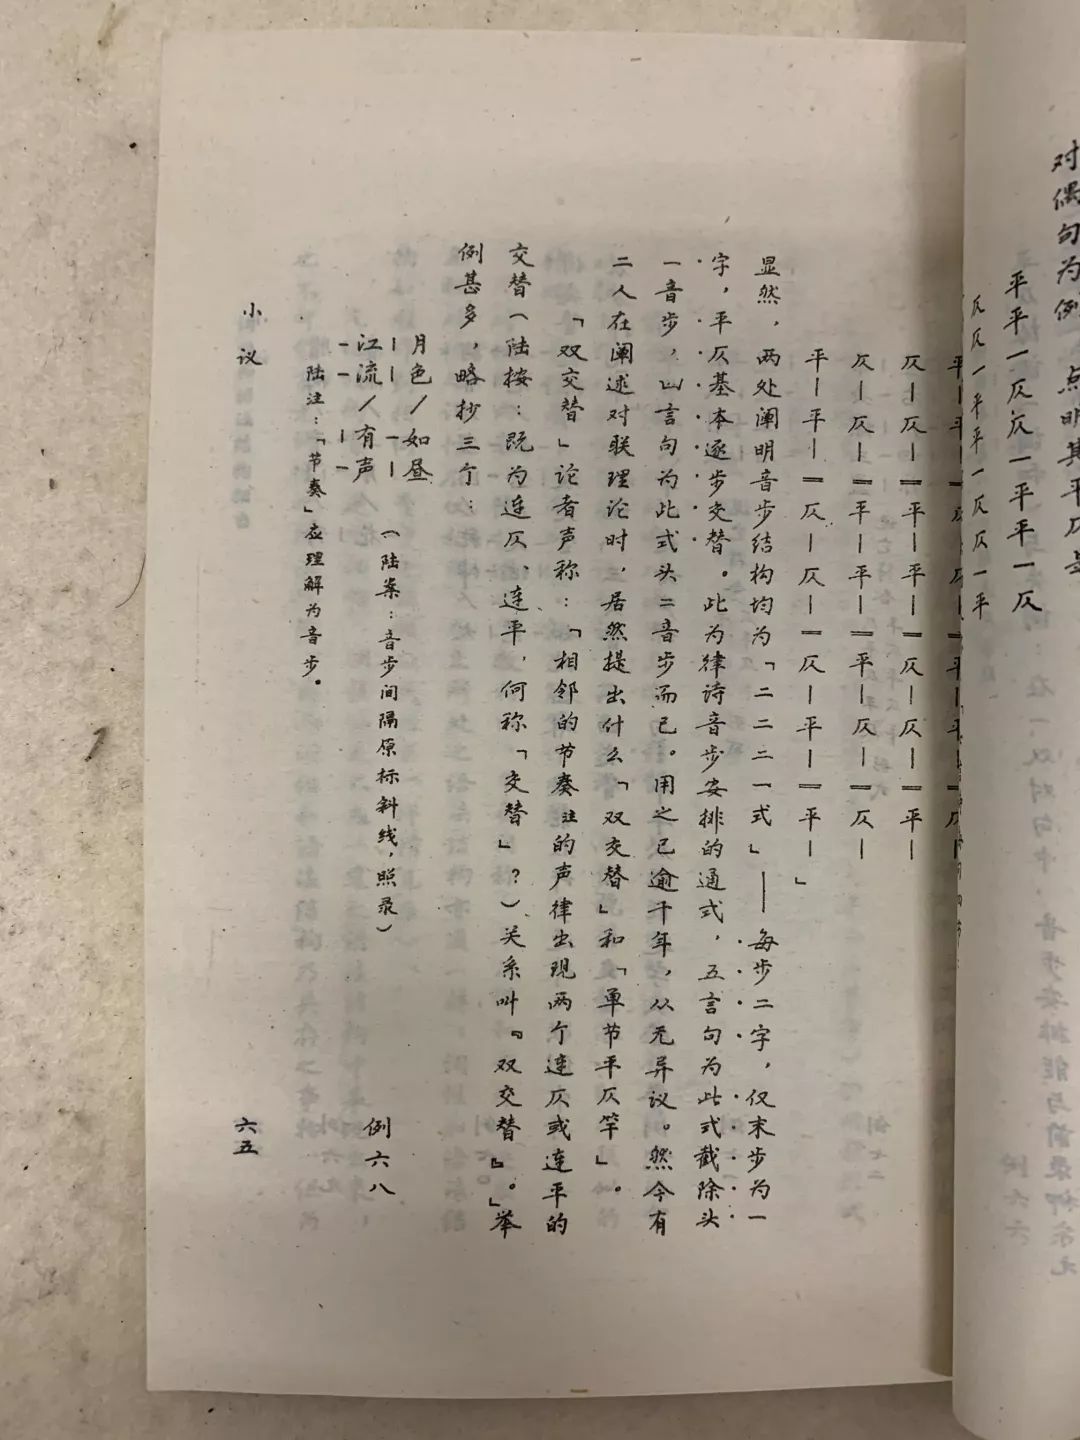 对偶句为例，点明其平仄是
平平一仄仄一平平一仄
仄仄一平平一仄仄一平
平|平|一仄|仄|一平|平|一仄|
仄|仄|一平|平|一仄|仄|一平|
仄|仄|一平|平|一平|仄|一仄|
平|平|一仄|仄|一仄|平|一平|」
显然，两处阐明音步结构均为「二二二一式」——每步二字，仅末步为一
字，平仄基本逐步交替。此为律诗音步安排的通式，五言句为此式截除头
一音步，六言句为此式头三音步而已。用之已逾千年，从无异议。然今有
二人在阐述对联理论时，居然提出什么「双交替」和「单节平仄竿」。
「双交替」论者声称：「相邻的节奏注的声律出现两个连仄或连平的
交替（陆按：既为连仄、连平，何称「交替」？）关系叫『双交替』。」举
例甚多，略抄三个：
月色/如昼
江流/有声
（陆案：音步间隔原标斜线，照录）
例六八
陆注：「节奏」应理解为音步。
小议
六五